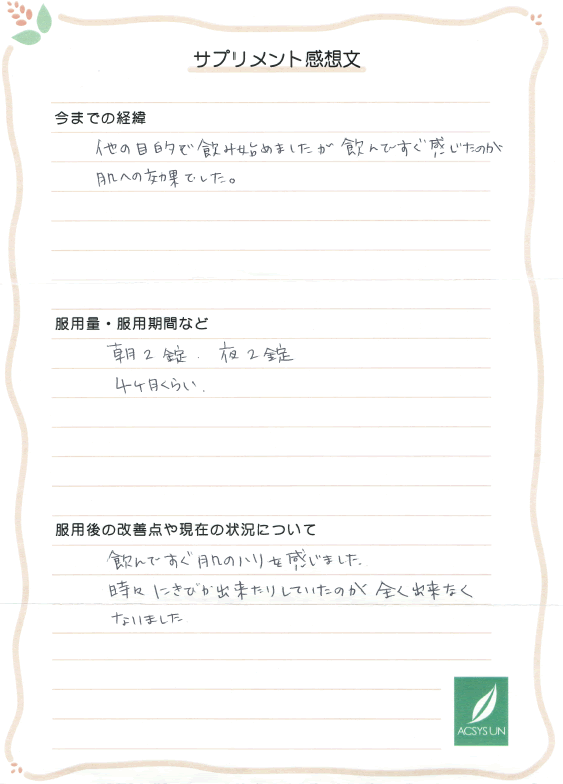 サプリメント感想文
今までの経緯
他の目的で飲み始めましたが 飲んですぐ感じたのが
肌への効果でした。
服用量・服用期間など
朝2錠. 夜2錠
4ヶ月くらい.
服用後の改善点や現在の状況について
飲んですぐ肌のハリを感じました.
時々にきびが出来たりしていたのが 全く出来なく
なりました
ACSYSUN